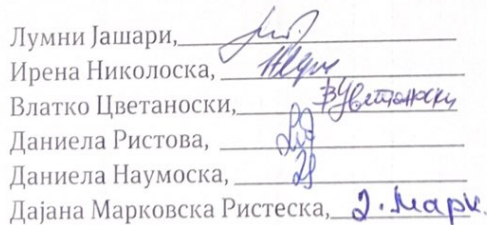 Лумни Јашари,
Ирена Николоска,
Влатко Цветаноски, ВЦветаноски
Даниела Ристова,
Даниела Наумоска,
Дајана Марковска Ристеска, Д. Марк.